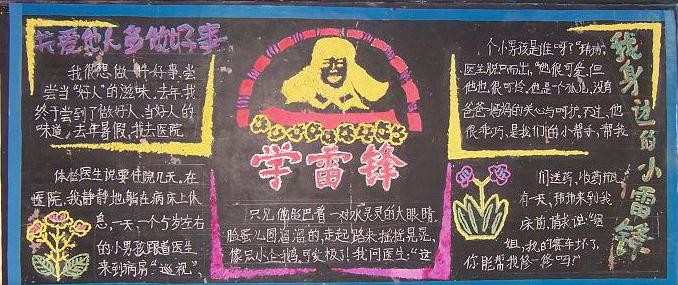 关爱他人多做好事
我很想做一件好事,尝
尝当“好人”的滋味,去年我
终于尝到了做好人,当好人的
味道,去年暑假,我去医院
体检医生说要住院几天。在
医院,我静静地躺在病床上休
息,一天,一个5岁左右
的小男孩跟着医生
来到病房“巡视”,
学雷锋
只见他忽巴着一对水灵灵的大眼睛,
脸蛋儿圆溜溜的,走起路来摇摇晃晃,
像只小企鹅,可爱极了!我问医生:“这
个小男孩是谁呀?”
医生脱口而出,“他很可爱,但
他也很可怜,他是个孤儿,没有
爸爸妈妈的关心与呵护,不过,他
很乖巧,是我们的小帮手,帮我
们送药,收药瓶,
有一天,
床前,请求说:“姐
姐,我的赛车坏了,
你能帮我修一修吗?”
我身边的小雷锋